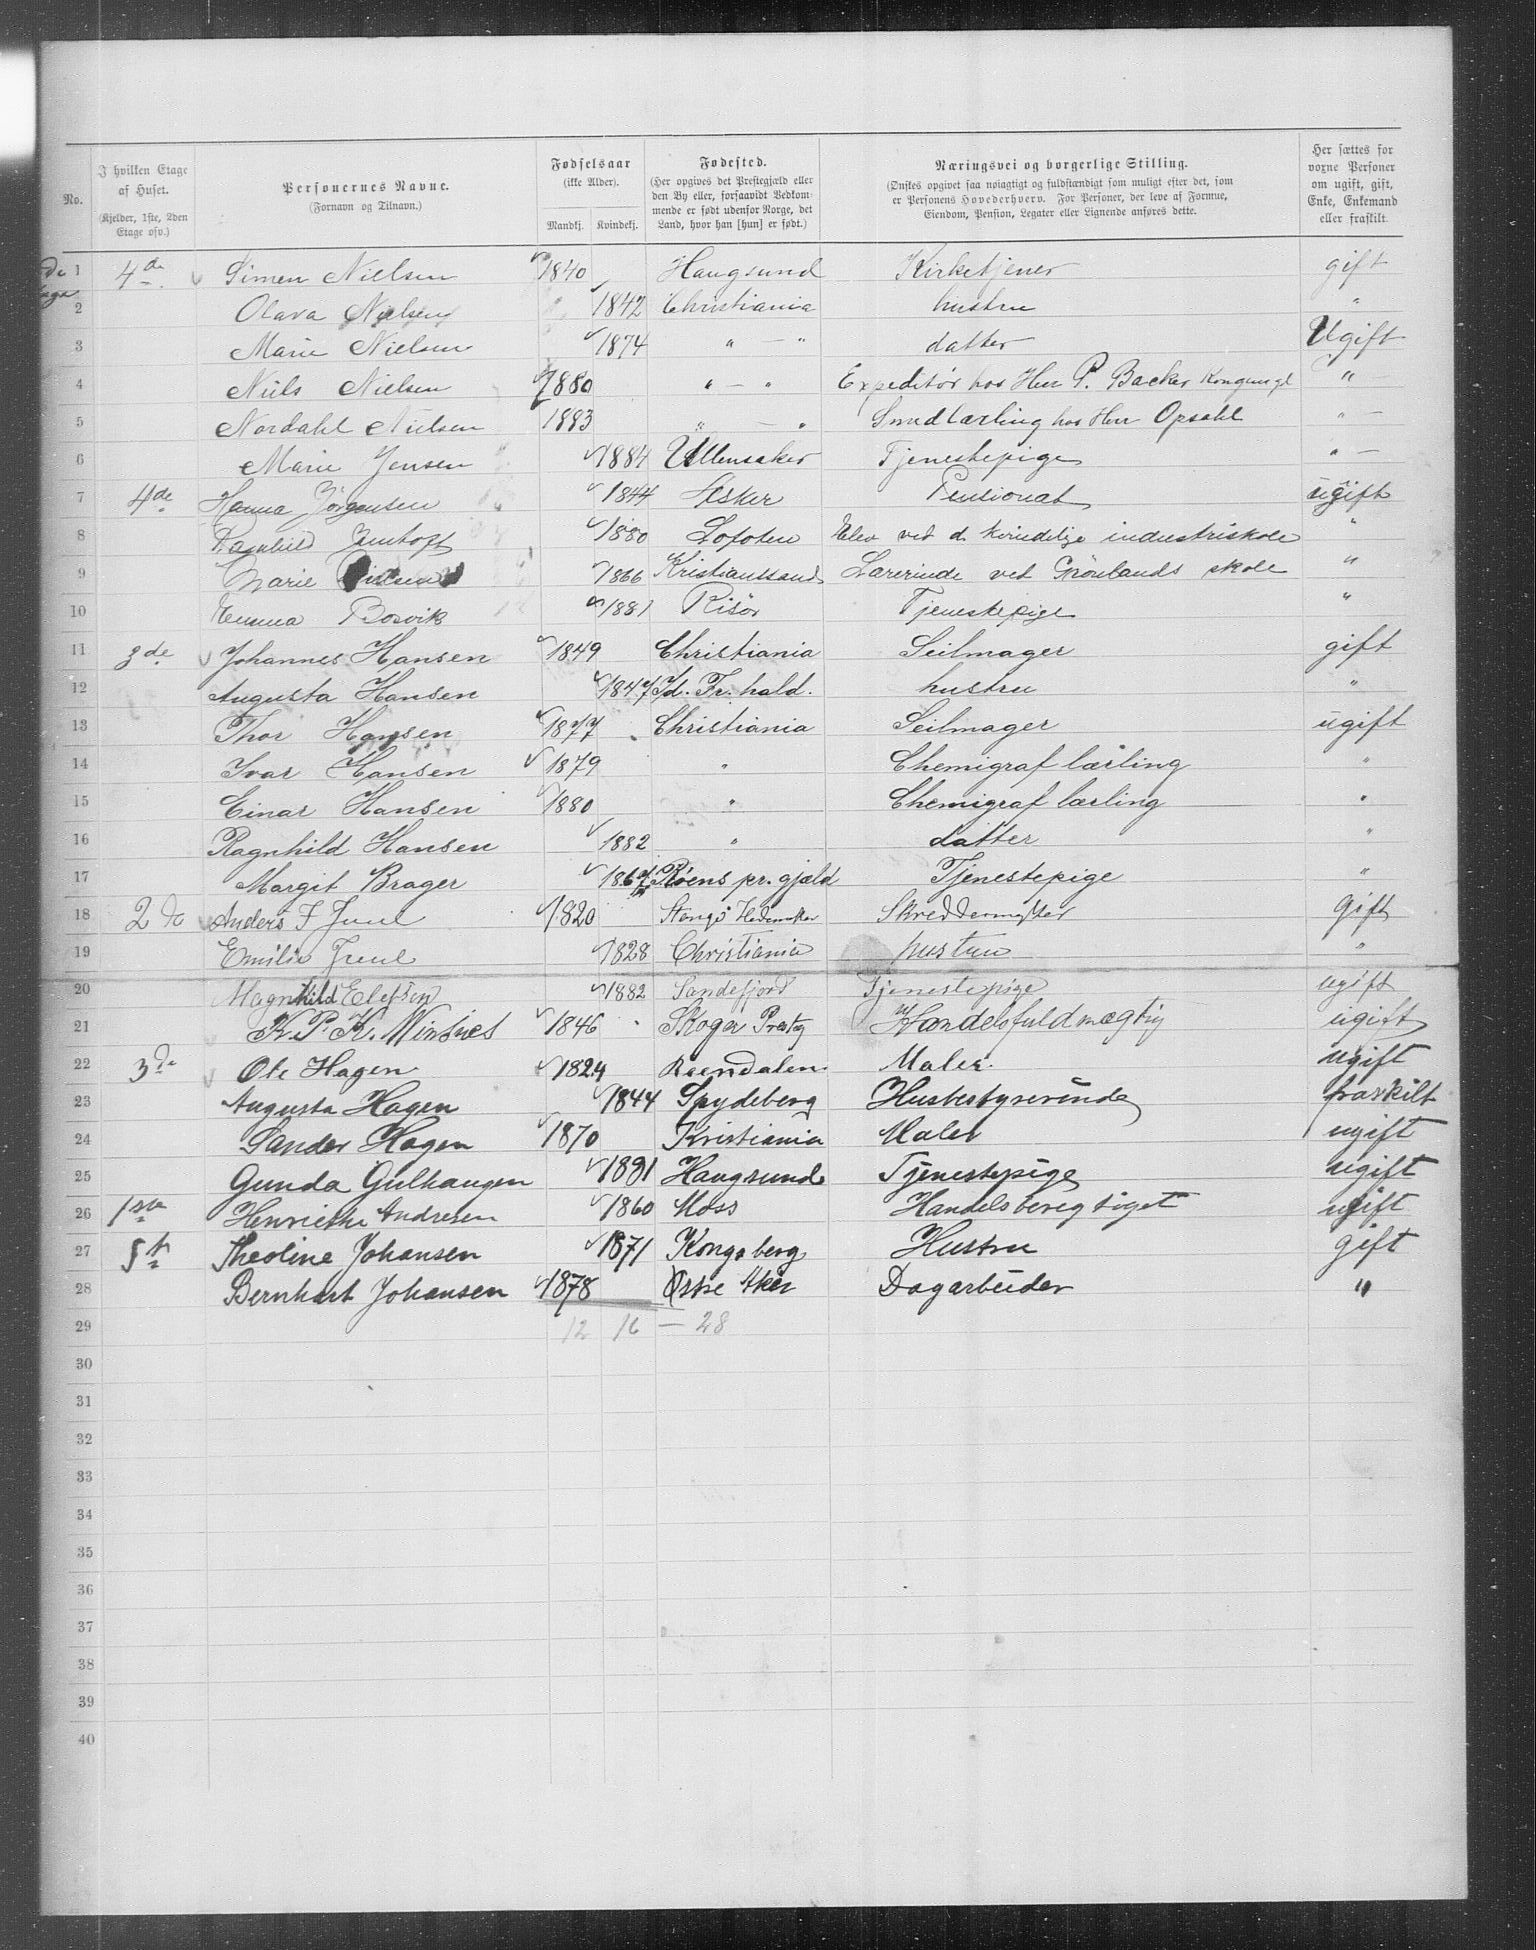 No.
I hvilken Etage af Huset. (Kjelder, 1ste, 2den Etage osv.)
Personernes Navne. (Fornavn og Tilnavn.)
Fødselsaar (ikke Alder). Mandkj. Kvindekj.
Fødested. (Her opgives det Prestegjæld eller den By eller, forsaavidt Vedkommende er født udenfor Norge, det Land, hvor han [hun] er født.)
Næringsvei og borgerlige Stilling. (Ønskes opgivet saa nøiagtigt og fuldstændigt som muligt efter det, som er Personens Hovederhverv. For Personer, der leve af Formue, Eiendom, Pension, Legater eller Lignende anføres dette.
Her sættes for voxne Personer om ugift, gift, Enke, Enkemand eller fraskilt.
1 4de Simen Nielsen 1840 Haugsund Kirketjener gift
2 Olava Nielsen 1842 Christiania hustru "
3 Marie Nielsen 1874 " — " datter Ugift
4 Niels Nielsen 1880 " — " Expeditør hos Herr P. Backer Kongensgt "
5 Nordahl Nielsen 1883 " — " Smedlærling hos Herr Opsahl " —
6 Marie Jensen 1884 Ullensaker Tjenestepige " —
7 4de Hanna Jörgensen 1844 Asker Pensionat ugift
8 Ragnhild 1880 Lofoten Elev ved d. kvindelige industriskole "
9 Marie Nielsen 1866 Kristianssand Lærerinde ved Grönlands skole "
10 Emma Bosvik 1881 Risör Tjenestepige "
11 3de Johannes Hansen 1849 Christiania Seilmager gift
12 Augusta Hansen 1847 Id. Fr. hald. hustru "
13 Thor Hansen 1877 Christiania Seilmager ugift
14 Ivar Hansen 1879 " Chemigraf lærling "
15 Einar Hansen 1880 " Chemigraf lærling "
16 Ragnhild Hansen 1882 " datter "
17 Margit Brager 1867 Röens pr. gjæld Tjenestepige "
18 2de Anders F Juul 1820 Stange Hedemarken Skreddermester Gift
19 Emilie Juul 1828 Christiania hustru "
20 Magnhild Elefsen 1882 Sandefjord Tjenestepige ugift
21 K. P. K. Winsnes 1846 Skoger Prestg Handelsfuldmægtig ugift
22 3de Ole Hagen 1824 Maler. ugift
23 Augusta Hagen 1844 Spydeberg Husbestyrerinde fraskilt
24 Sander Hagen 1870 Kristiania Maler ugift
25 Gunda Gulhaugen 1881 Haugsund Tjenestepige ugift
26 1ste Henriette Andresen 1860 Moss Handelsberegtiget ugift
27 5te Theoline Johansen 1871 Kongsberg Hustru gift
28 Bernhart Johansen 1878 Østre Aker Dagarbeider "
29 12 16 — 28
30
31
32
33
34
35
36
37
38
39
40